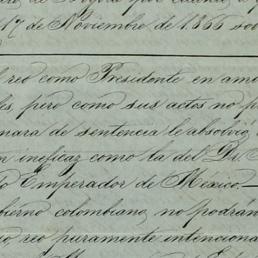 17 de Noviembre de 1866 sob
l reo como Presidente en am
es pero como sus actos no p
mara de sentencia le absolvió
n ineficaz como la del Dr.
do Emperador de México.—
bierno colombiano, no podrán
o reo puramente intenciona